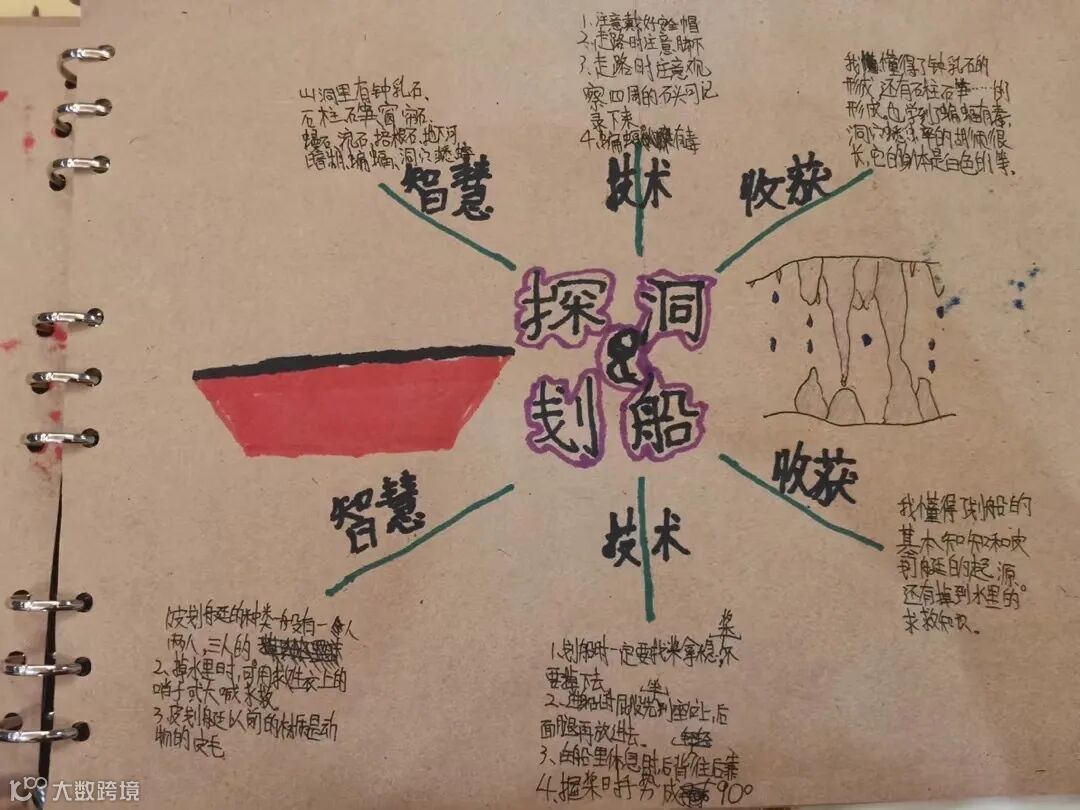 山洞里有钟乳石、
石柱、石笋、窗帘石、
流石、棓根石、地下河、
暗湖、蝙蝠、洞穴蟋蟀
智慧
1、注意戴好安全帽
2、走路时注意脚下
3、走路时注意观
察四周的石头可记
录下来
4、蝙蝠有毒
技术
我懂得了钟乳石的
形成,还有石柱石笋……的
形成,也学到了蝙蝠有毒,
洞穴蟋蟀的胡须很
长,它的身体是白色的等。
收获
探洞
&
划船
智慧
1、皮划艇的种类一般有一人
两人,三人的
2、掉水里时,可用救生衣上的
哨子或大喊求救
3、皮划艇以前的材质是动
物的皮毛
技术
桨
1、划船时一定要把桨拿稳,不
要掉下去
2、进船时屁股先坐到座位上,后
面腿再放进去
3、在船里休息时后背往后靠
4、握桨时手势成90°
收获
我懂得了划船的
基本知识和皮
划艇的起源
还有掉到水里的
求救知识。
大数跨境